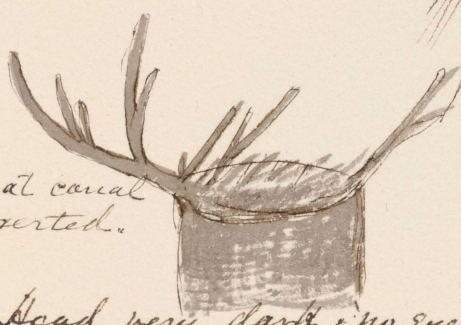 at canal
serted.
Head very dark & no eye